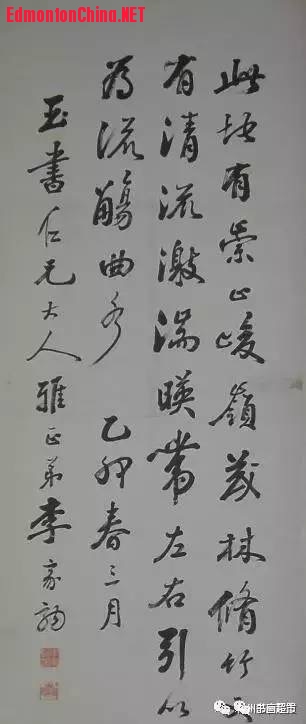 EdmontonChina.NET
此地有崇山峻嶺茂林脩竹又
有清流激湍暎帶左右引以
為流觴曲水 乙卯春三月
玉書仁兄大人雅正弟李家駒
州书画超市